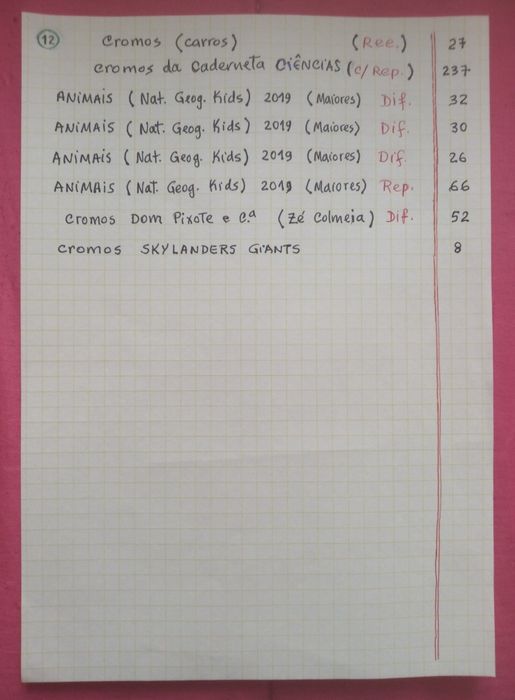 12 Cromos (carros) (Ree.) 27
Cromos da Caderneta CIÊNCIAS (c/ Rep.) 237
ANIMAIS (Nat. Geog. Kids) 2019 (Maiores) Dif. 32
ANIMAIS (Nat. Geog. Kids) 2019 (Maiores) Dif. 30
ANIMAIS (Nat. Geog. Kids) 2019 (Maiores) Dif. 26
ANIMAIS (Nat. Geog. Kids) 2019 (Maiores) Rep. 66
Cromos Dom Pixote e C.ª (Zé Colmeia) Dif. 52
Cromos SKYLANDERS GIANTS 8